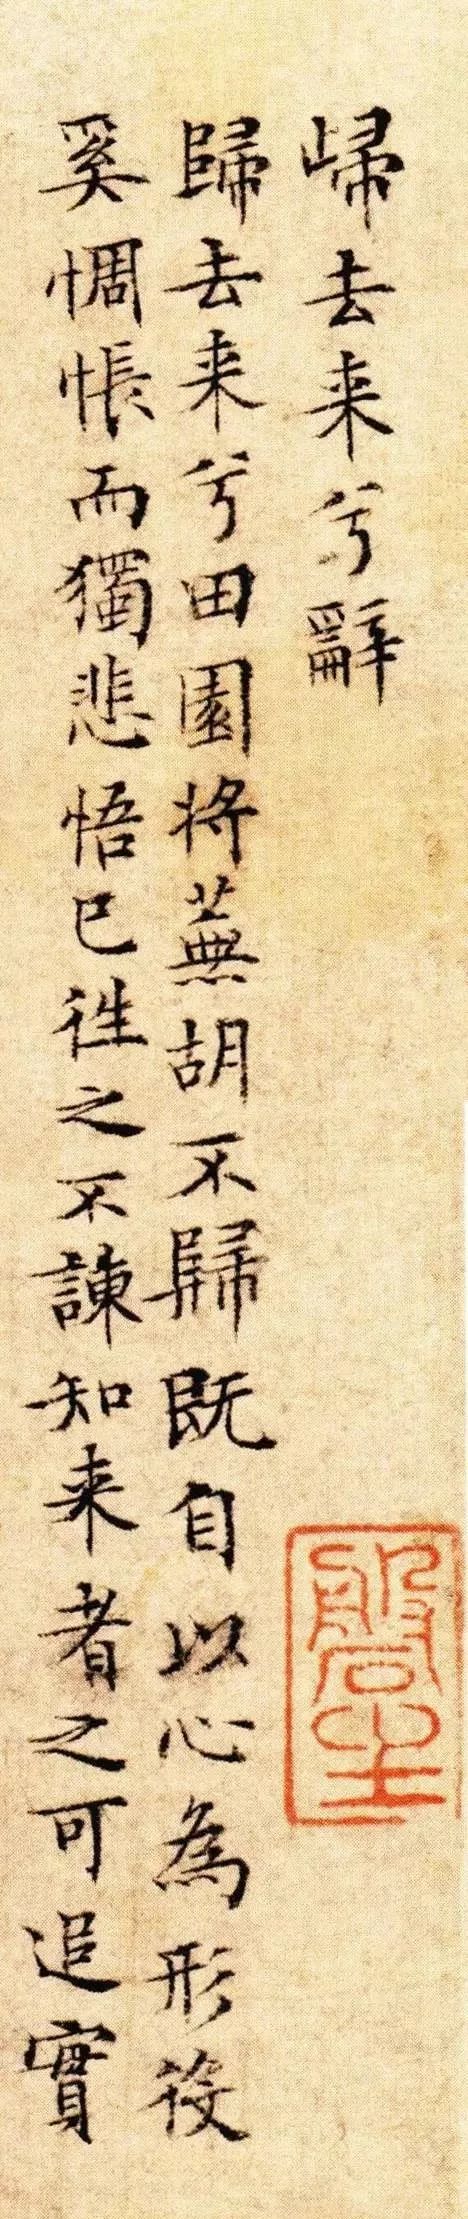 㱕去来兮辭
歸去来兮田園将蕪胡不歸既自以心為形役
奚惆悵而獨悲悟已徃之不諫知来者之可追實